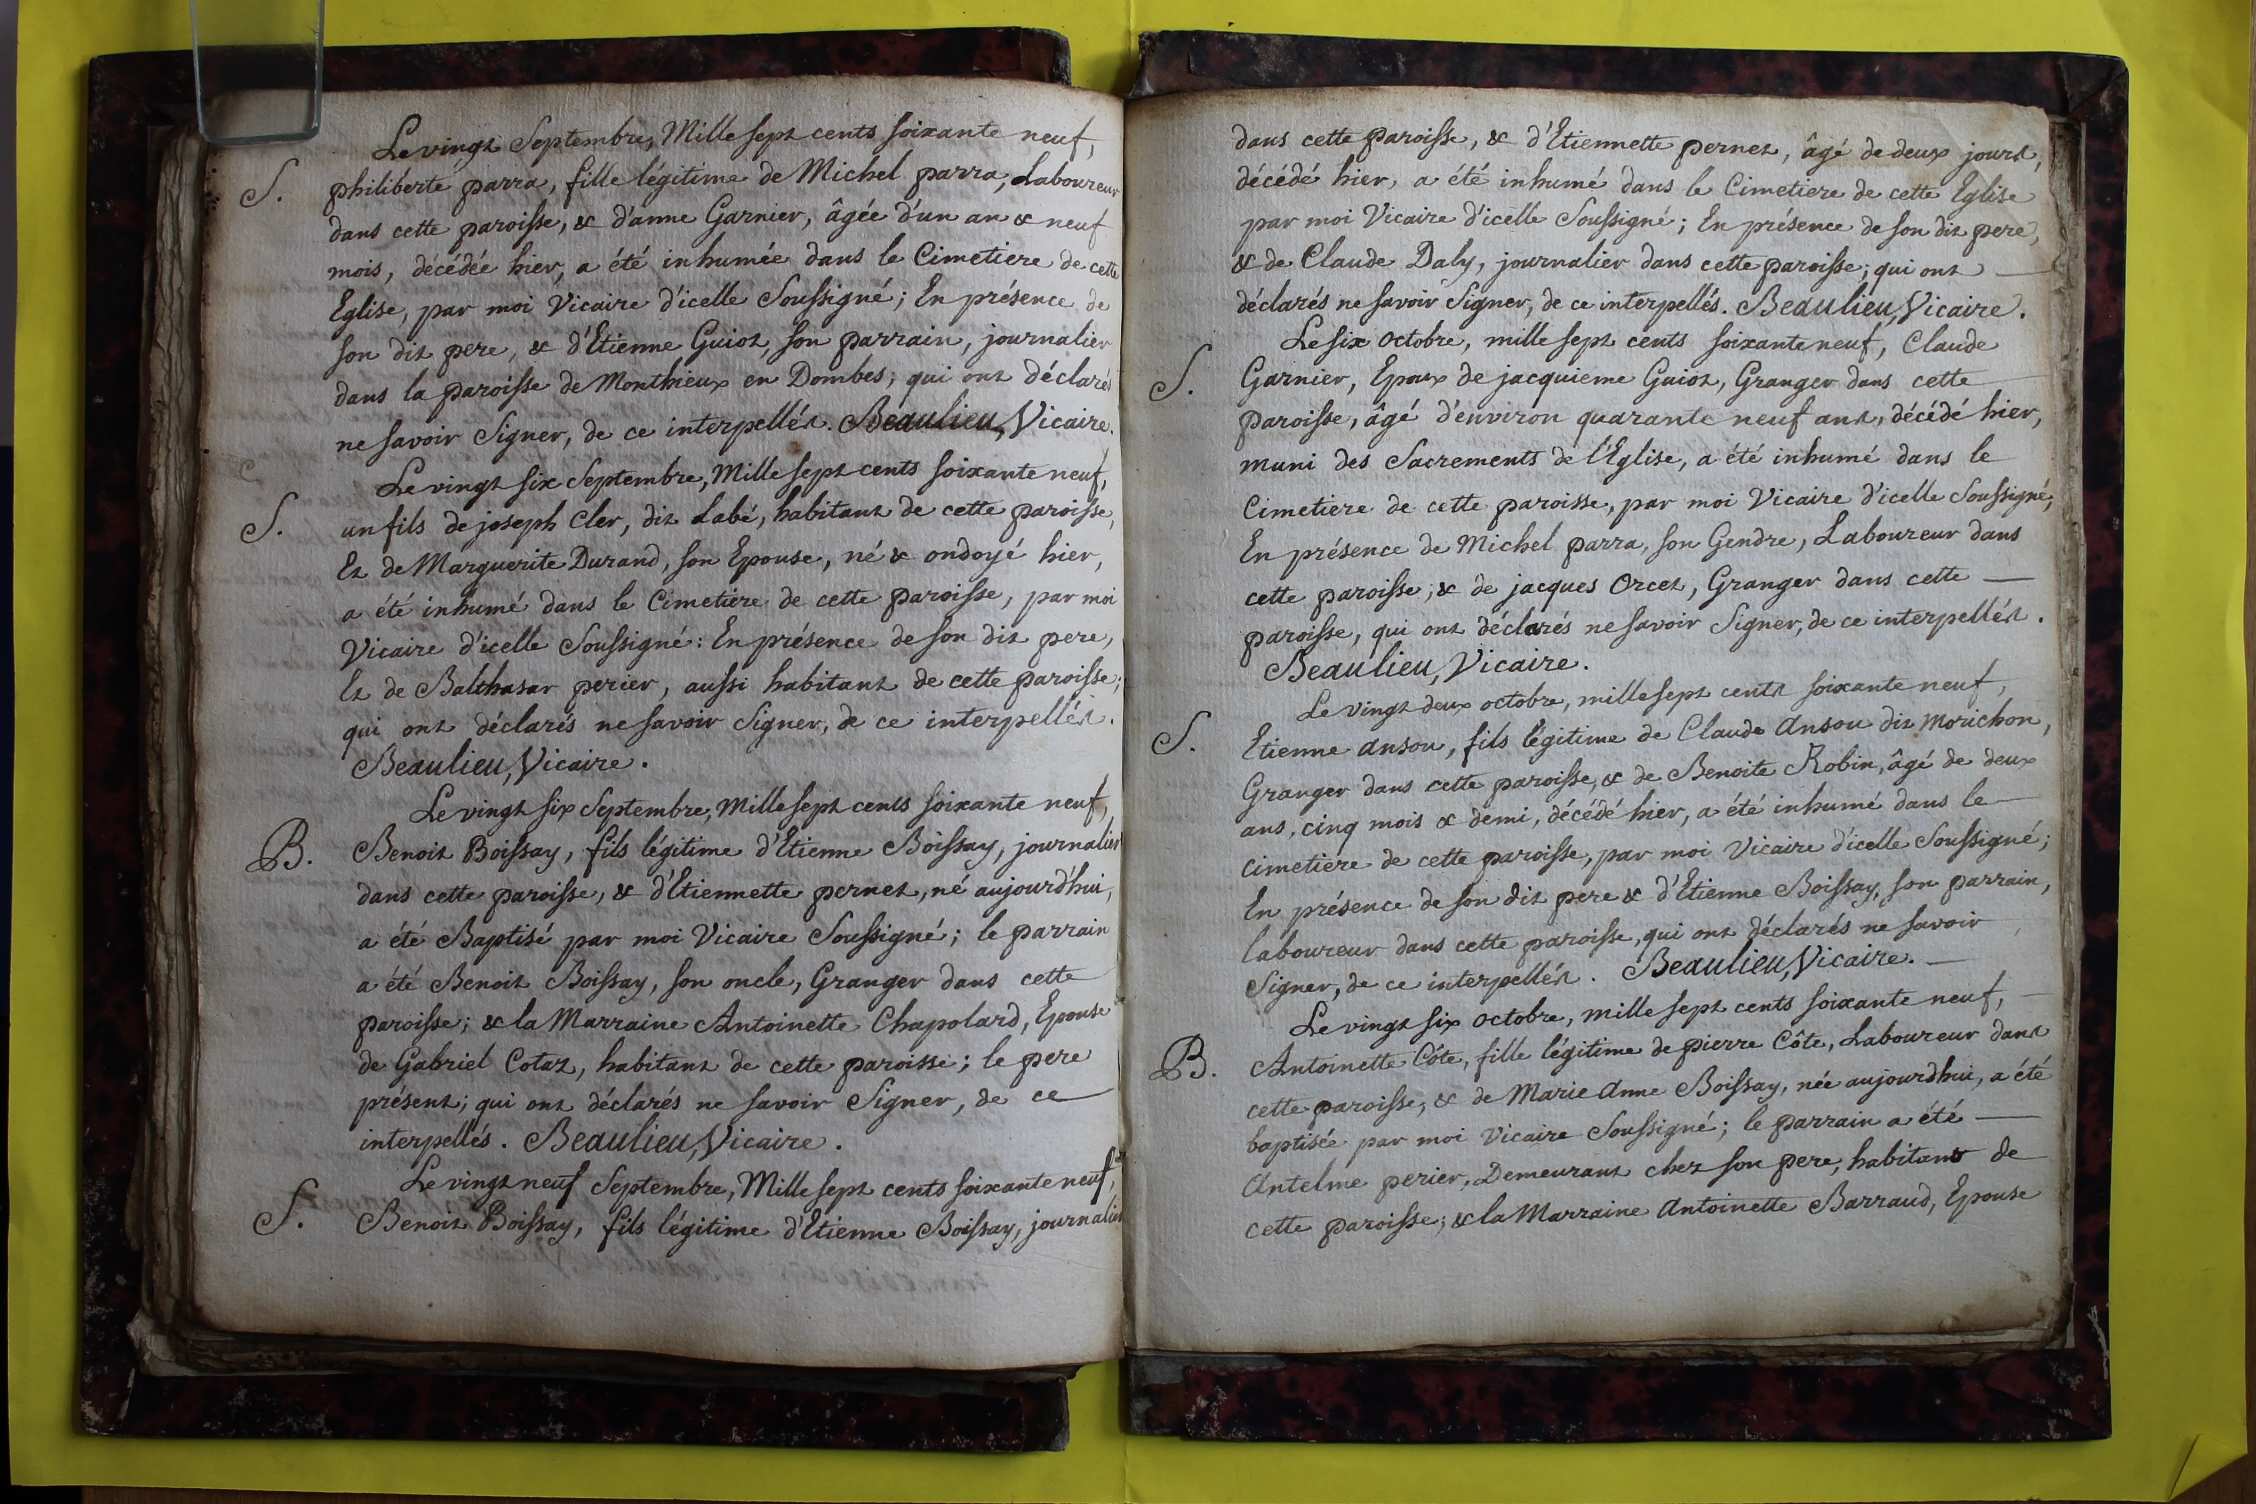 Le vingt Septembre, Mille sept cents soixante neuf,
S. philiberte parra, fille légitime de Michel parra, Laboureur
dans cette paroisse, & d'anne Garnier, âgée d'un an & neuf
mois, décédée hier, a été inhumée dans le Cimetiere de cette
Eglise, par moi Vicaire d'icelle Soussigné; En présence de
son dit pere, & d'Etienne Guiot, son parrain, journalier
dans la paroisse de Monthieux en Dombes; qui ont déclarés
ne savoir Signer, de ce interpellés. Beaulieu, Vicaire.
Le vingt six Septembre, Mille sept cents soixante neuf,
S. un fils de joseph Cler, dit Labé, habitant de cette paroisse,
Et de Marguerite Durand, son Epouse, né & ondoyé hier,
a été inhumé dans le Cimetiere de cette paroisse, par moi
Vicaire d'icelle Soussigné: En présence de son dit pere,
Et de Balthasar perier, aussi habitant de cette paroisse;
qui ont déclarés ne savoir Signer, de ce interpellés.
Beaulieu, Vicaire.
Le vingt six Septembre, Mille sept cents soixante neuf,
B. Benoit Boissay, fils légitime d'Etienne Boissay, journalier
dans cette paroisse, & d'Etiennette pernet, né aujourd'hui,
a été Baptisé par moi Vicaire Soussigné; le parrain
a été Benoit Boissay, son oncle, Granger dans cette
paroisse; & la Marraine Antoinette Chapolard, Epouse
de Gabriel Cotaz, habitant de cette paroisse; le pere
présent; qui ont déclarés ne savoir Signer, de ce
interpellés. Beaulieu, Vicaire.
Le vingt neuf Septembre, Mille sept cents soixante neuf,
S. Benoit Boissay, fils légitime d'Etienne Boissay, journalier
dans cette paroisse, & d'Etiennette pernet, âgé de deux jours,
décédé hier, a été inhumé dans le Cimetiere de cette Eglise
par moi Vicaire d'icelle Soussigné; En présence de son dit pere,
& de Claude Daly, journalier dans cette paroisse; qui ont
déclarés ne savoir Signer, de ce interpellés. Beaulieu, Vicaire.
Le six octobre, mille sept cents soixante neuf, Claude
S. Garnier, Epoux de jacquieme Guiot, Granger dans cette
paroisse, âgé d'environ quarante neuf ans, décédé hier,
muni des Sacrements de l'Eglise, a été inhumé dans le
Cimetiere de cette paroisse, par moi Vicaire d'icelle Soussigné;
En présence de Michel parra, son Gendre, Laboureur dans
cette paroisse; & de jacques Orcet, Granger dans cette
paroisse, qui ont déclarés ne savoir Signer, de ce interpellés.
Beaulieu, Vicaire.
Le vingt deux octobre, mille sept cents soixante neuf,
S. Etienne anson, fils légitime de Claude anson dit Morichon,
Granger dans cette paroisse, & de Benoite Robin, âgé de deux
ans, cinq mois & demi, décédé hier, a été inhumé dans le
cimetiere de cette paroisse, par moi Vicaire d'icelle Soussigné;
En présence de son dit pere & d'Etienne Boissay, son parrain,
laboureur dans cette paroisse, qui ont déclarés ne savoir
Signer, de ce interpellés. Beaulieu, Vicaire.
Le vingt six octobre, mille sept cents soixante neuf,
B. Antoinette Côte, fille légitime de pierre Côte, Laboureur dans
cette paroisse, & de Marie anne Boissay, née aujourd'hui, a été
baptisée par moi Vicaire Soussigné; le parrain a été
Antelme perier, Demeurant chez son pere, habitant de
cette paroisse; & la Marraine Antoinette Barraud, Epouse